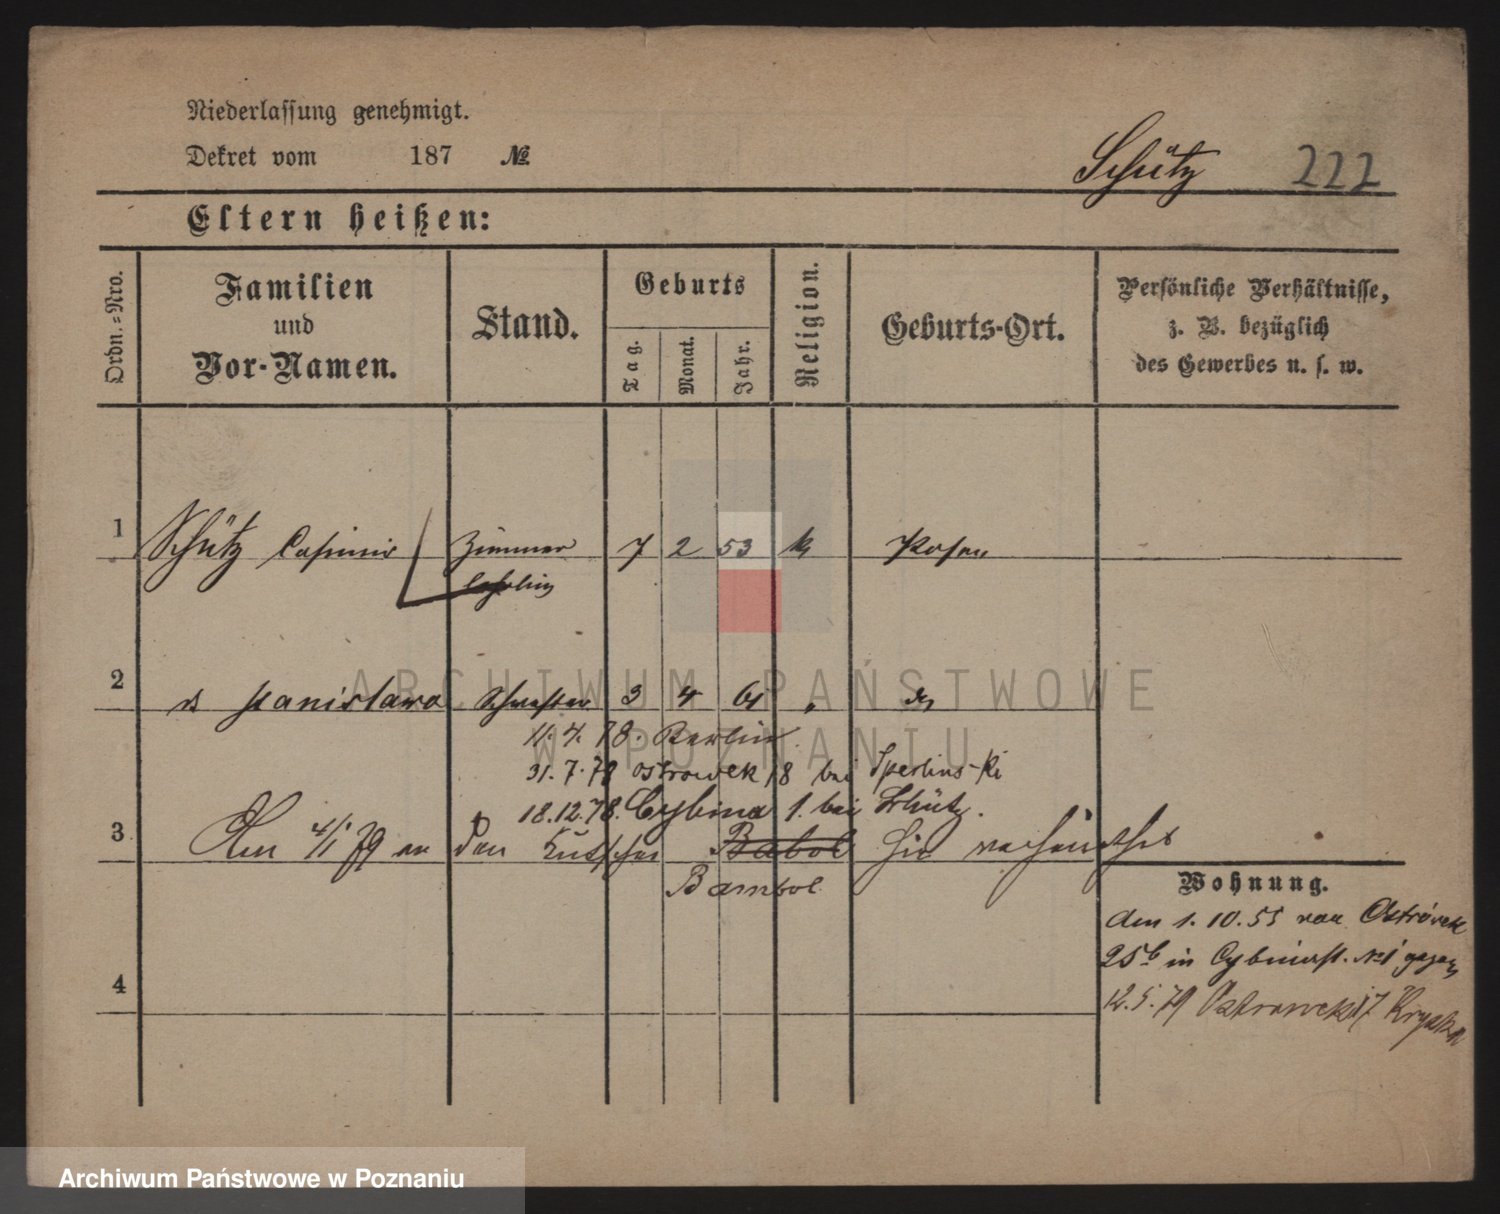 Niederlassung genehmigt.
Dekret vom 187 №
Schütz 222
Eltern heißen:
Ordn.-Nro.
Familien
und
Vor-Namen.
Stand.
Geburts
Tag.
Monat.
Jahr.
Religion.
Geburts-Ort.
Persönliche Verhältnisse,
z. B. bezüglich
des Gewerbes u. s. w.
1 Schütz Casimir Zimmer 7 2 53 k Posen
lehrling
2 Stanislawa Schwester 3 4 61 "
11. 4. 78. Berlin.
31. 7. 78 Ostrowek 18 bei
18. 12. 78. Cybina 1. bei Schütz.
3 Am 4/1 79 an den Kutscher Babol hier verheirathet
Bambol
Wohnung.
den 1. 10. 55 von Ostrówek
25b in Cybinast. No 1 gezogen
12. 5. 79 Ostrowek 17
4
ARCHIWUM PAŃSTWOWE
W POZNANIU
Archiwum Państwowe w Poznaniu